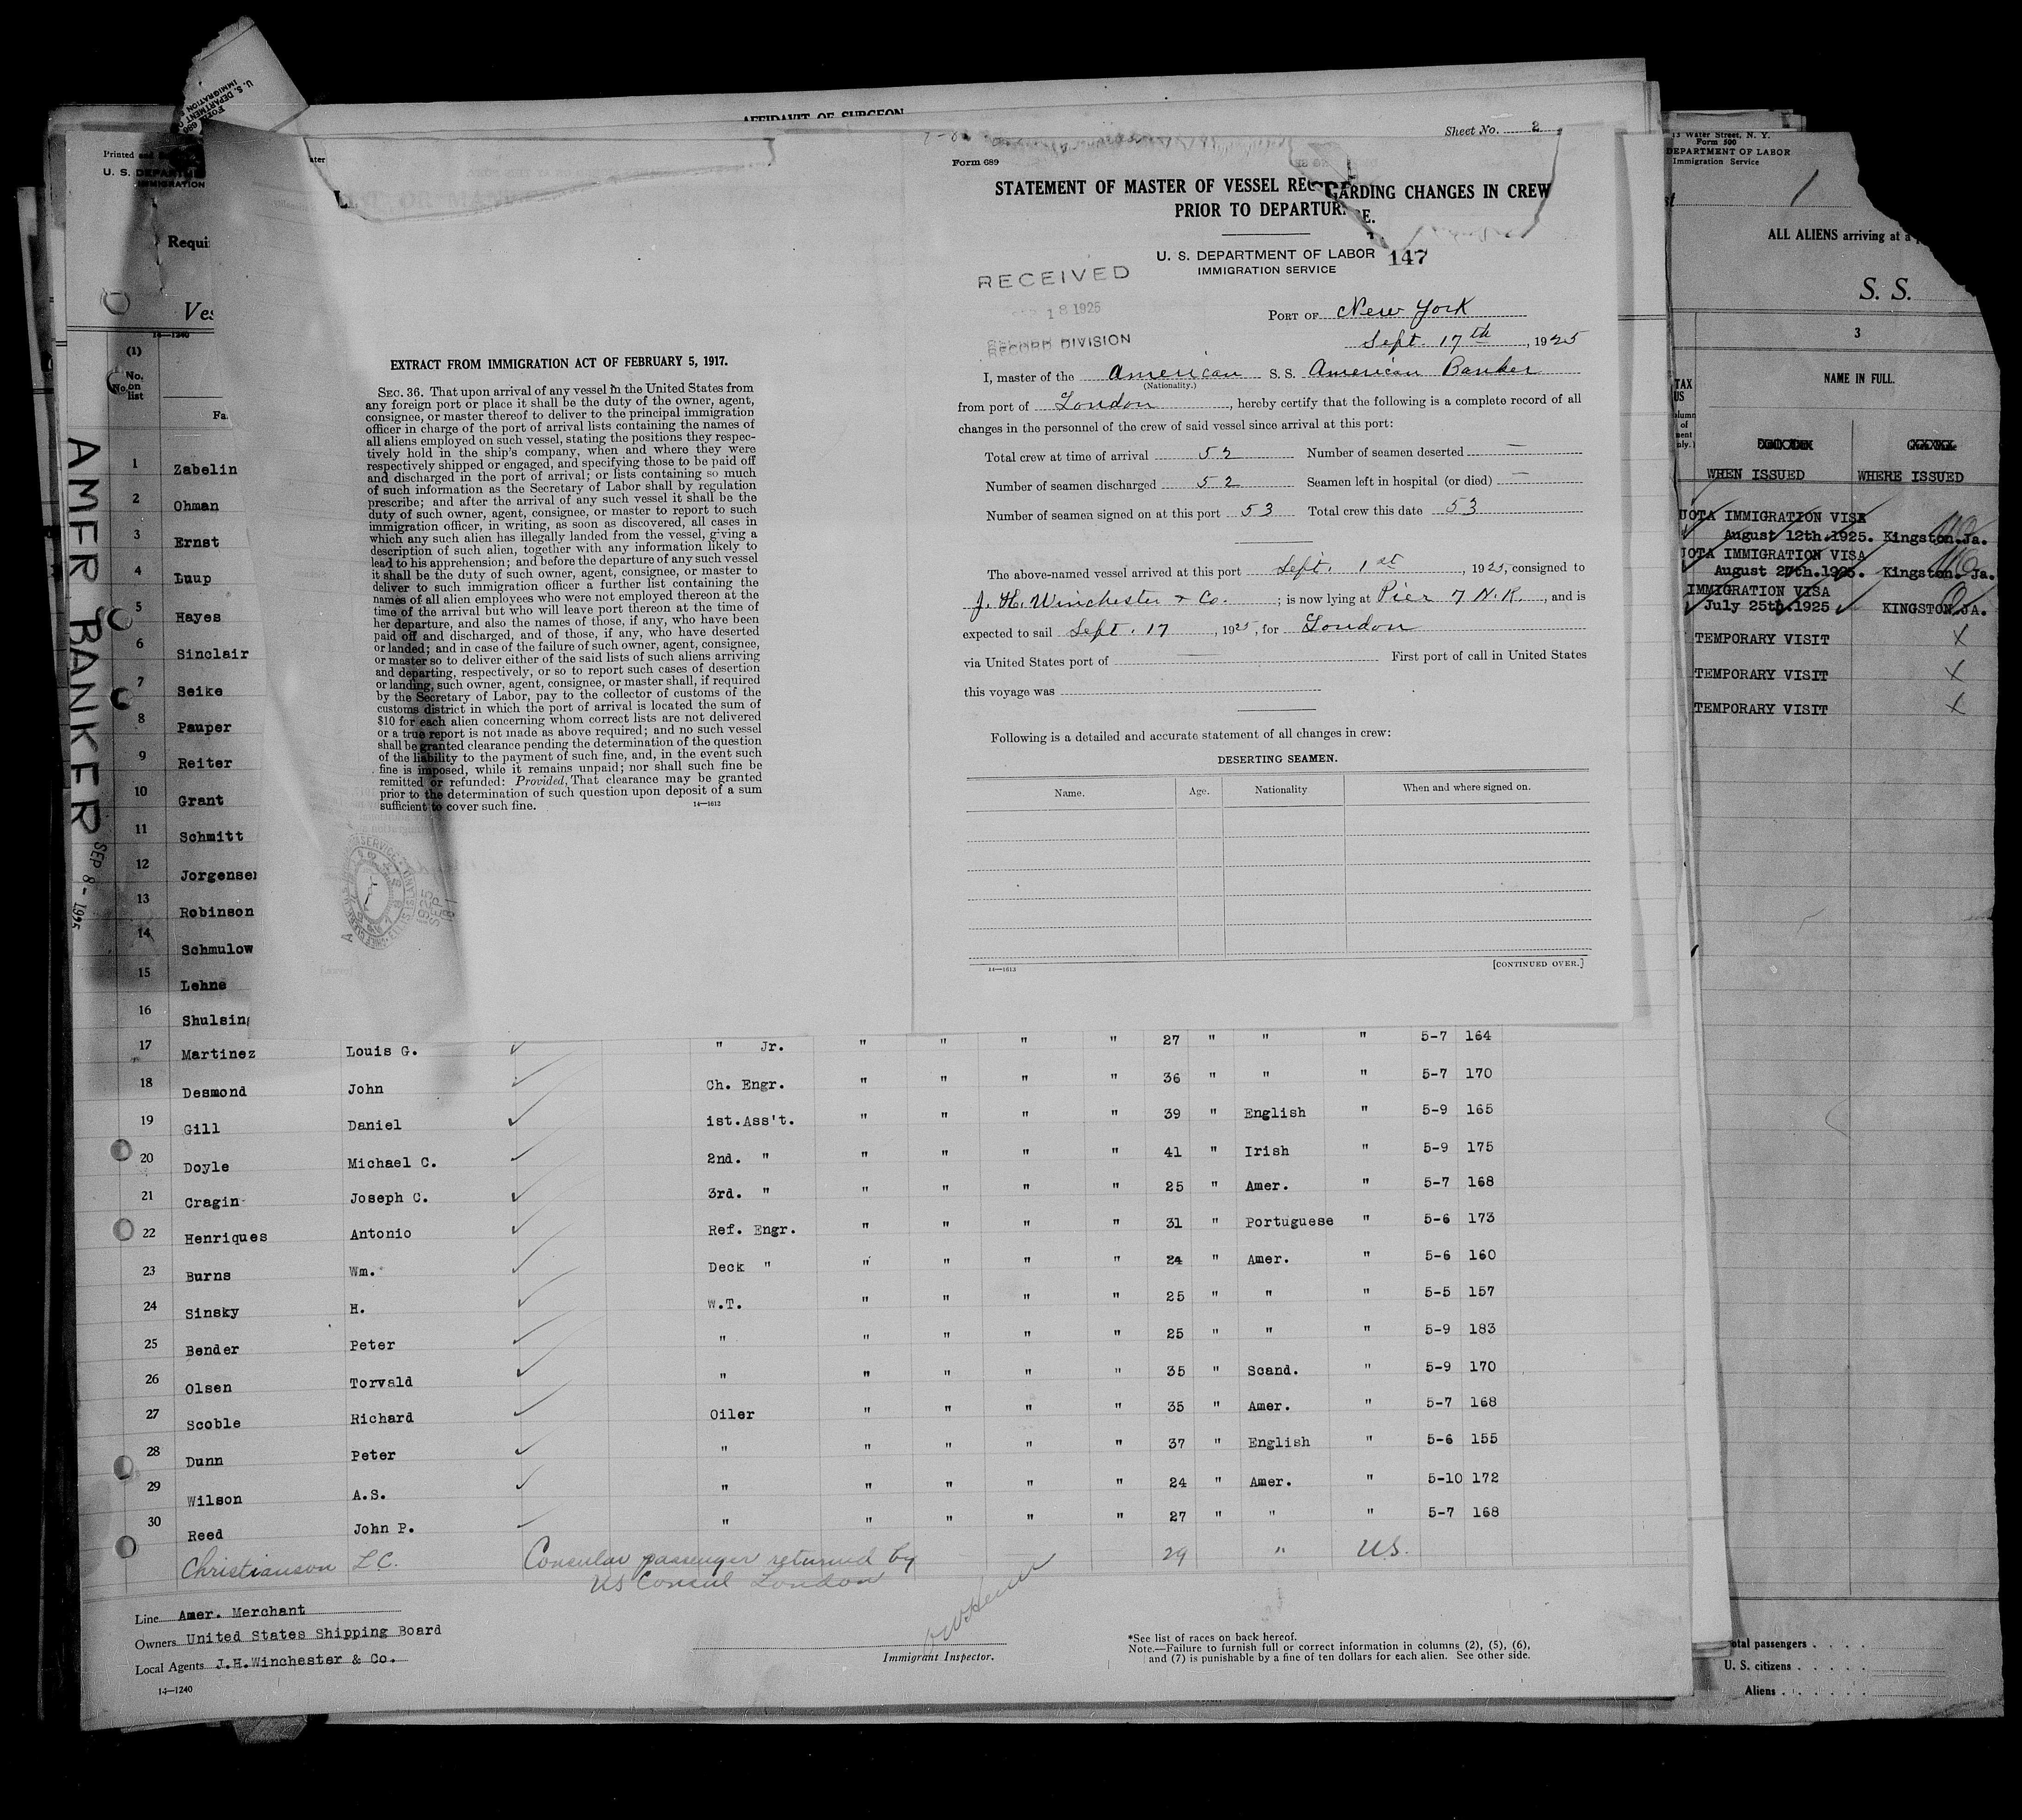 U. S. DEPARTMENT
IMMIGRATION
Form 689
AFFIDAVIT OF SURGEON
Sheet No. 2
Printed and
U. S. DEPARTMENT
IMMIGRATION
Requi
Ves
14—1240
(1)
No. on list
Fa
AMER BANKER
SEP 8 - 1925
1 Zabelin
2 Ohman
3 Ernst
4 Luup
5 Hayes
6 Sinclair
7 Seike
8 Pauper
9 Reiter
10 Grant
11 Schmitt
12 Jorgensen
13 Robinson
14 Schmulow
15 Lehne
16 Shulsing
EXTRACT FROM IMMIGRATION ACT OF FEBRUARY 5, 1917.
SEC. 36. That upon arrival of any vessel in the United States from
any foreign port or place it shall be the duty of the owner, agent,
consignee, or master thereof to deliver to the principal immigration
officer in charge of the port of arrival lists containing the names of
all aliens employed on such vessel, stating the positions they respec-
tively hold in the ship's company, when and where they were
respectively shipped or engaged, and specifying those to be paid off
and discharged in the port of arrival; or lists containing so much
of such information as the Secretary of Labor shall by regulation
prescribe; and after the arrival of any such vessel it shall be the
duty of such owner, agent, consignee, or master to report to such
immigration officer, in writing, as soon as discovered, all cases in
which any such alien has illegally landed from the vessel, giving a
description of such alien, together with any information likely to
lead to his apprehension; and before the departure of any such vessel
it shall be the duty of such owner, agent, consignee, or master to
deliver to such immigration officer a further list containing the
names of all alien employees who were not employed thereon at the
time of the arrival but who will leave port thereon at the time of
her departure, and also the names of those, if any, who have been
paid off and discharged, and of those, if any, who have deserted
or landed; and in case of the failure of such owner, agent, consignee,
or master so to deliver either of the said lists of such aliens arriving
and departing, respectively, or so to report such cases of desertion
or landing, such owner, agent, consignee, or master shall, if required
by the Secretary of Labor, pay to the collector of customs of the
customs district in which the port of arrival is located the sum of
$10 for each alien concerning whom correct lists are not delivered
or a true report is not made as above required; and no such vessel
shall be granted clearance pending the determination of the question
of the liability to the payment of such fine, and, in the event such
fine is imposed, while it remains unpaid; nor shall such fine be
remitted or refunded: Provided, That clearance may be granted
prior to the determination of such question upon deposit of a sum
sufficient to cover such fine.
14—1613
Form 689
STATEMENT OF MASTER OF VESSEL REGARDING CHANGES IN CREW
PRIOR TO DEPARTURE.
U. S. DEPARTMENT OF LABOR 147
IMMIGRATION SERVICE
RECEIVED
18 1925
RECORD DIVISION
PORT OF New York
Sept. 17th, 1925
I, master of the American S. S. American Banker
(Nationality.)
from port of London, hereby certify that the following is a complete record of all
changes in the personnel of the crew of said vessel since arrival at this port:
Total crew at time of arrival 52 Number of seamen deserted —
Number of seamen discharged 52 Seamen left in hospital (or died) —
Number of seamen signed on at this port 53 Total crew this date 53
The above-named vessel arrived at this port Sept. 1st, 1925, consigned to
J. H. Winchester & Co. ; is now lying at Pier 7 N.R., and is
expected to sail Sept. 17, 1925, for London
via United States port of — First port of call in United States
this voyage was
Following is a detailed and accurate statement of all changes in crew:
DESERTING SEAMEN.
Name. Age. Nationality When and where signed on.
14—1613 [CONTINUED OVER.]
13 Water Street, N. Y.
Form 500
DEPARTMENT OF LABOR
Immigration Service
1
ALL ALIENS arriving at a
S. S.
3
NAME IN FULL.
TAX
US
WHEN ISSUED WHERE ISSUED
UOTA IMMIGRATION VISA
August 12th.1925. Kingston.Ja.
UOTA IMMIGRATION VISA
August 27th.1925. Kingston. Ja.
IMMIGRATION VISA
July 25th.1925 KINGSTON.JA.
TEMPORARY VISIT X
TEMPORARY VISIT X
TEMPORARY VISIT X
17 Martinez Louis G. " Jr. " " " " 27 " " " 5-7 164
18 Desmond John Ch. Engr. " " " " 36 " " " 5-7 170
19 Gill Daniel 1st.Ass't. " " " " 39 " English " 5-9 165
20 Doyle Michael C. 2nd. " " " " " 41 " Irish " 5-9 175
21 Cragin Joseph C. 3rd. " " " " " 25 " Amer. " 5-7 168
22 Henriques Antonio Ref. Engr. " " " " 31 " Portuguese " 5-6 173
23 Burns Wm. Deck " " " " " 24 " Amer. " 5-6 160
24 Sinsky H. W.T. " " " " 25 " " " 5-5 157
25 Bender Peter " " " " " 25 " " " 5-9 183
26 Olsen Torvald " " " " " 35 " Scand. " 5-9 170
27 Scoble Richard Oiler " " " " 35 " Amer. " 5-7 168
28 Dunn Peter " " " " " 37 " English " 5-6 155
29 Wilson A.S. " " " " " 24 " Amer. " 5-10 172
30 Reed John P. " " " " " 27 " " " 5-7 168
Christianson L C. Consular passenger returned by 29 " U.S.
US Consul London
Line Amer. Merchant
Owners United States Shipping Board
Local Agents J.H.Winchester & Co.
14—1240
Immigrant Inspector.
*See list of races on back hereof.
Note.—Failure to furnish full or correct information in columns (2), (5), (6),
and (7) is punishable by a fine of ten dollars for each alien. See other side.
Total passengers . . . .
U. S. citizens . . . . .
Aliens . . . . . .